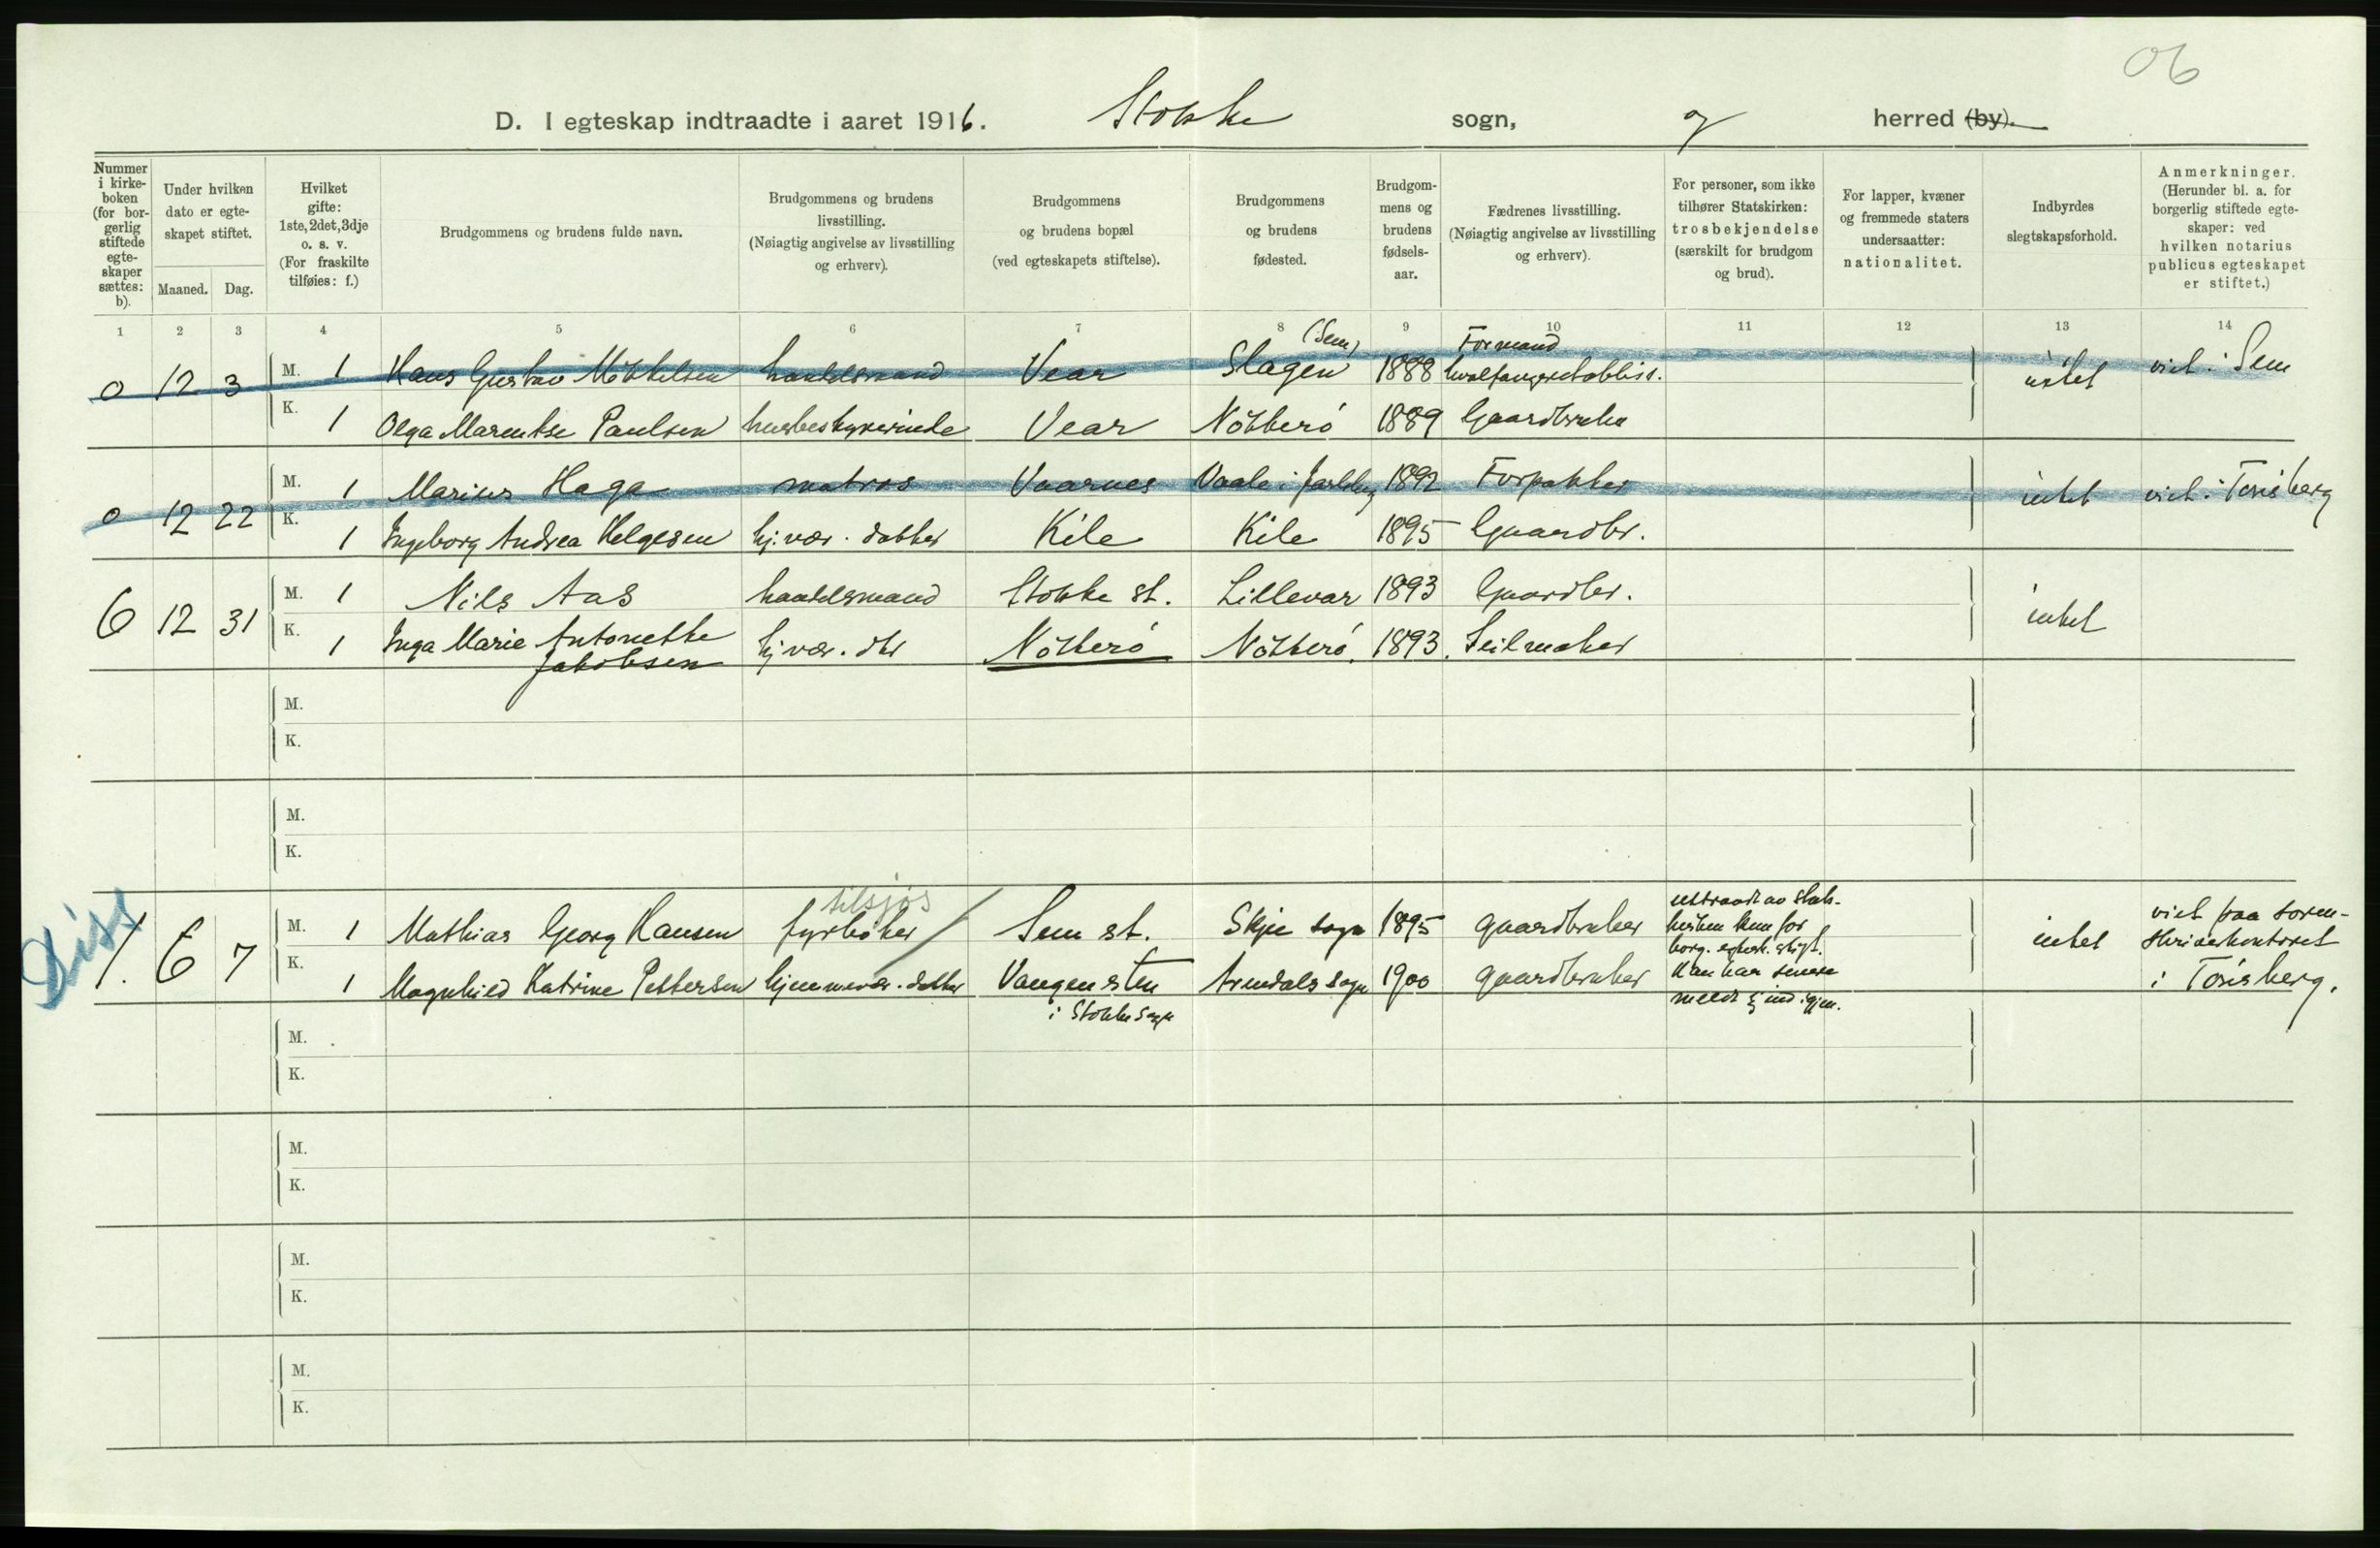 06
D. I egteskap indtraadte i aaret 1916. Stokke sogn, herred (by).
Nummer i kirkeboken (for borgerlig stiftede egteskaper sættes: b).
Under hvilken dato er egteskapet stiftet.
Maaned. Dag.
Hvilket gifte: 1ste, 2det, 3dje o. s. v. (For fraskilte tilføies: f.)
Brudgommens og brudens fulde navn.
Brudgommens og brudens livsstilling. (Nøiagtig angivelse av livsstilling og erhverv).
Brudgommens og brudens bopæl (ved egteskapets stiftelse).
Brudgommens og brudens fødested.
Brudgommens og brudens fødselsaar.
Fædrenes livsstilling. (Nøiagtig angivelse av livsstilling og erhverv).
For personer, som ikke tilhører Statskirken: trosbekjendelse (særskilt for brudgom og brud).
For lapper, kvæner og fremmede staters undersaatter: nationalitet.
Indbyrdes slegtskapsforhold.
Anmerkninger. (Herunder bl. a. for borgerlig stiftede egteskaper: ved hvilken notarius publicus egteskapet er stiftet.)
1 2 3 4 5 6 7 8 9 10 11 12 13 14
0 12 3 M. 1 Hans Gustav Mikkelsen handelsmand Vear Slagen (Sem) 1888 Formand hvalfangeretabliss. intet viet i Sem
K. 1 Olga Marentse Paulsen husbestyrerinde Vear Nötterö 1889 Gaardbruker
0 12 22 M. 1 Marius Haga matros Vaarnes Vaale i Jarlsberg 1892 Forpakter intet viet i Tönsberg
K. 1 Ingeborg Andrea Helgesen hj. vær. datter Kile Kile 1895 Gaardbr.
6 12 31 M. 1 Nils Aas handelsmand Stokke st. Lillevar 1893 Gaardbr. intet
K. 1 Inga Marie Antonette Jakobsen hj. vær. dtr Nötterö Nötterö. 1893. Seilmaker
M.
K.
M.
K.
1. 6 7 M. 1 Mathias Georg Hansen fyrböter tilsjøs Sem st. Skjee sogn 1895 gaardbruker uttraadt av stats-
kirken kun for
borg. egtesk. skyld.
Han har senere
meldt sig ind igjen.
intet viet paa soren-
skriverkontoret
i Tönsberg.
K. 1 Magnhild Katrine Pettersen hjemmevær. datter Vangensten
i Stokke sogn
Arendals sogn 1900 gaardbruker
M.
K.
M.
K.
M.
K.
M.
K.